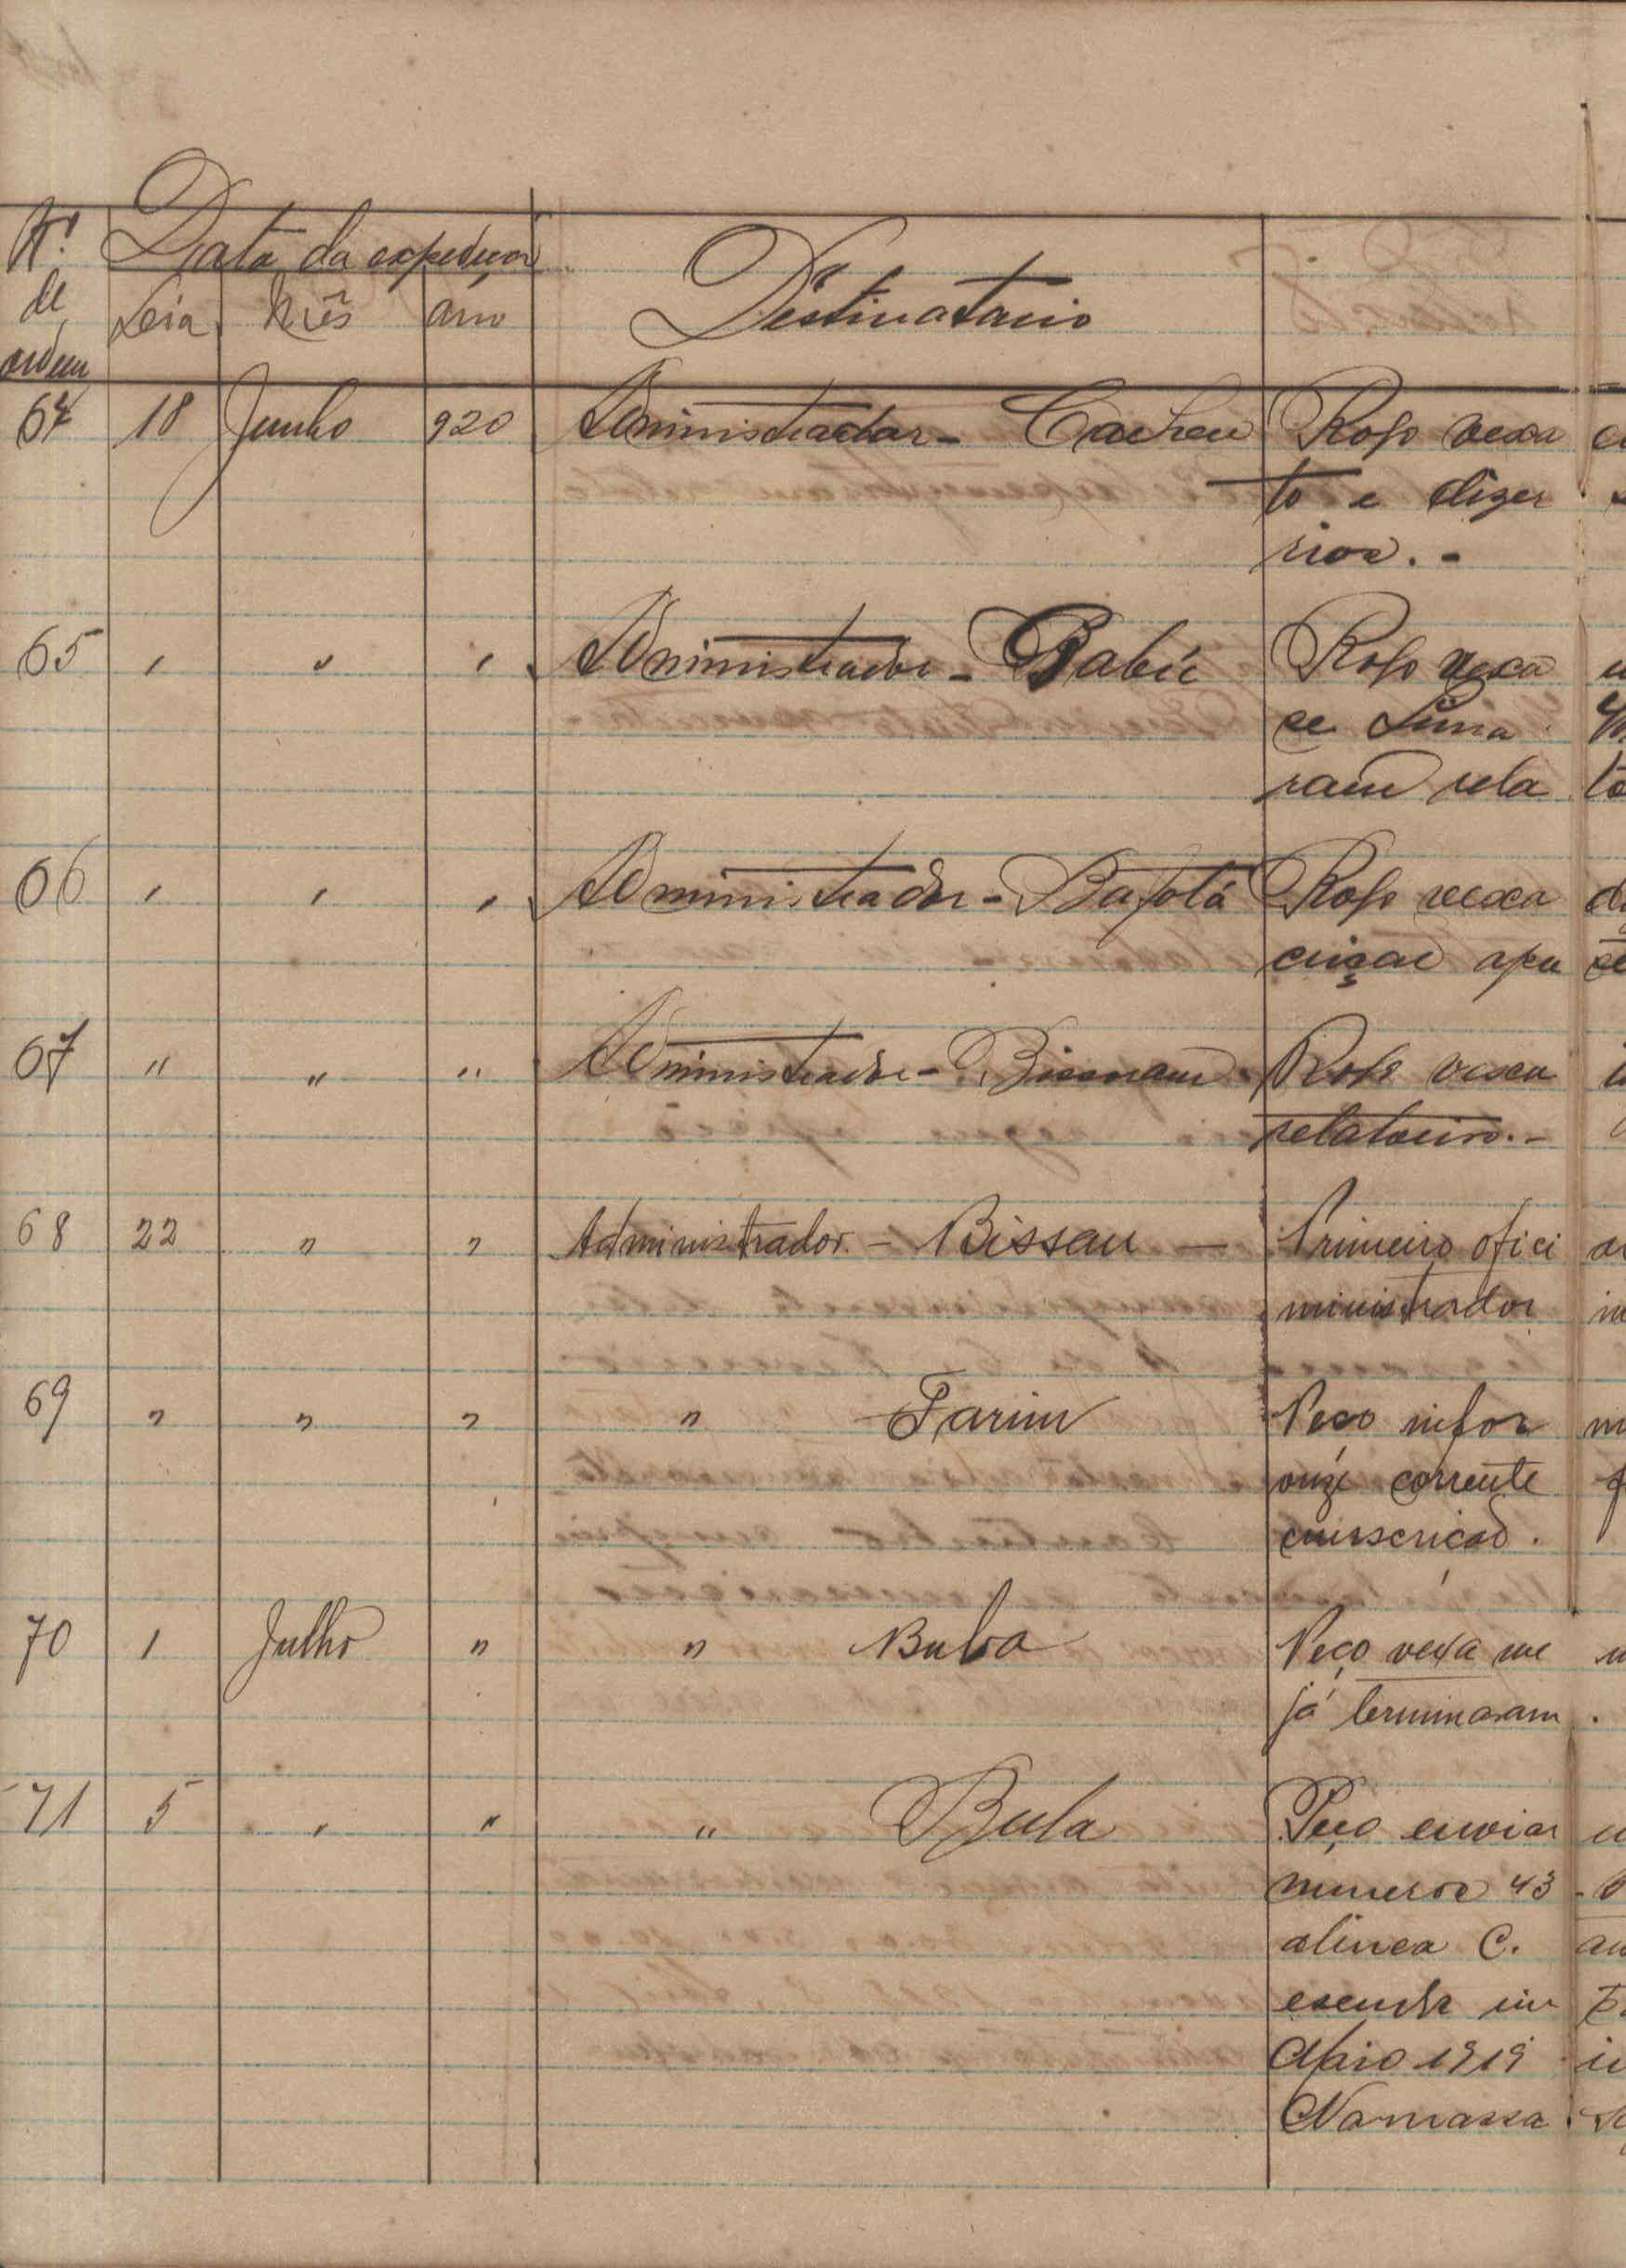 Nº Data da expedição
de Dia Mês ano Destinatario
ordem
64 18 Junho 920 Administrador - Cacheu Rogo vexa
to e dizer
rios. -
65 " " " Administrador - Babú Rogo vexa
se Lima
ram rela
66 " " " Administrador - Bafatá Rogo vexa
cinção apu
67 " " " Administrador - Rogo vexa
relatorio. -
68 22 " " Administrador - Bissau - Primeiro ofici
ministrador
69 " " " " Farim Peço infor
onze corrente
cunscrição.
70 1 Julho " " Buba Peço vexa me
já terminaram.
71 5 " " " Bula Peço enviar
numeros 43
alinea C.
Maio 1919